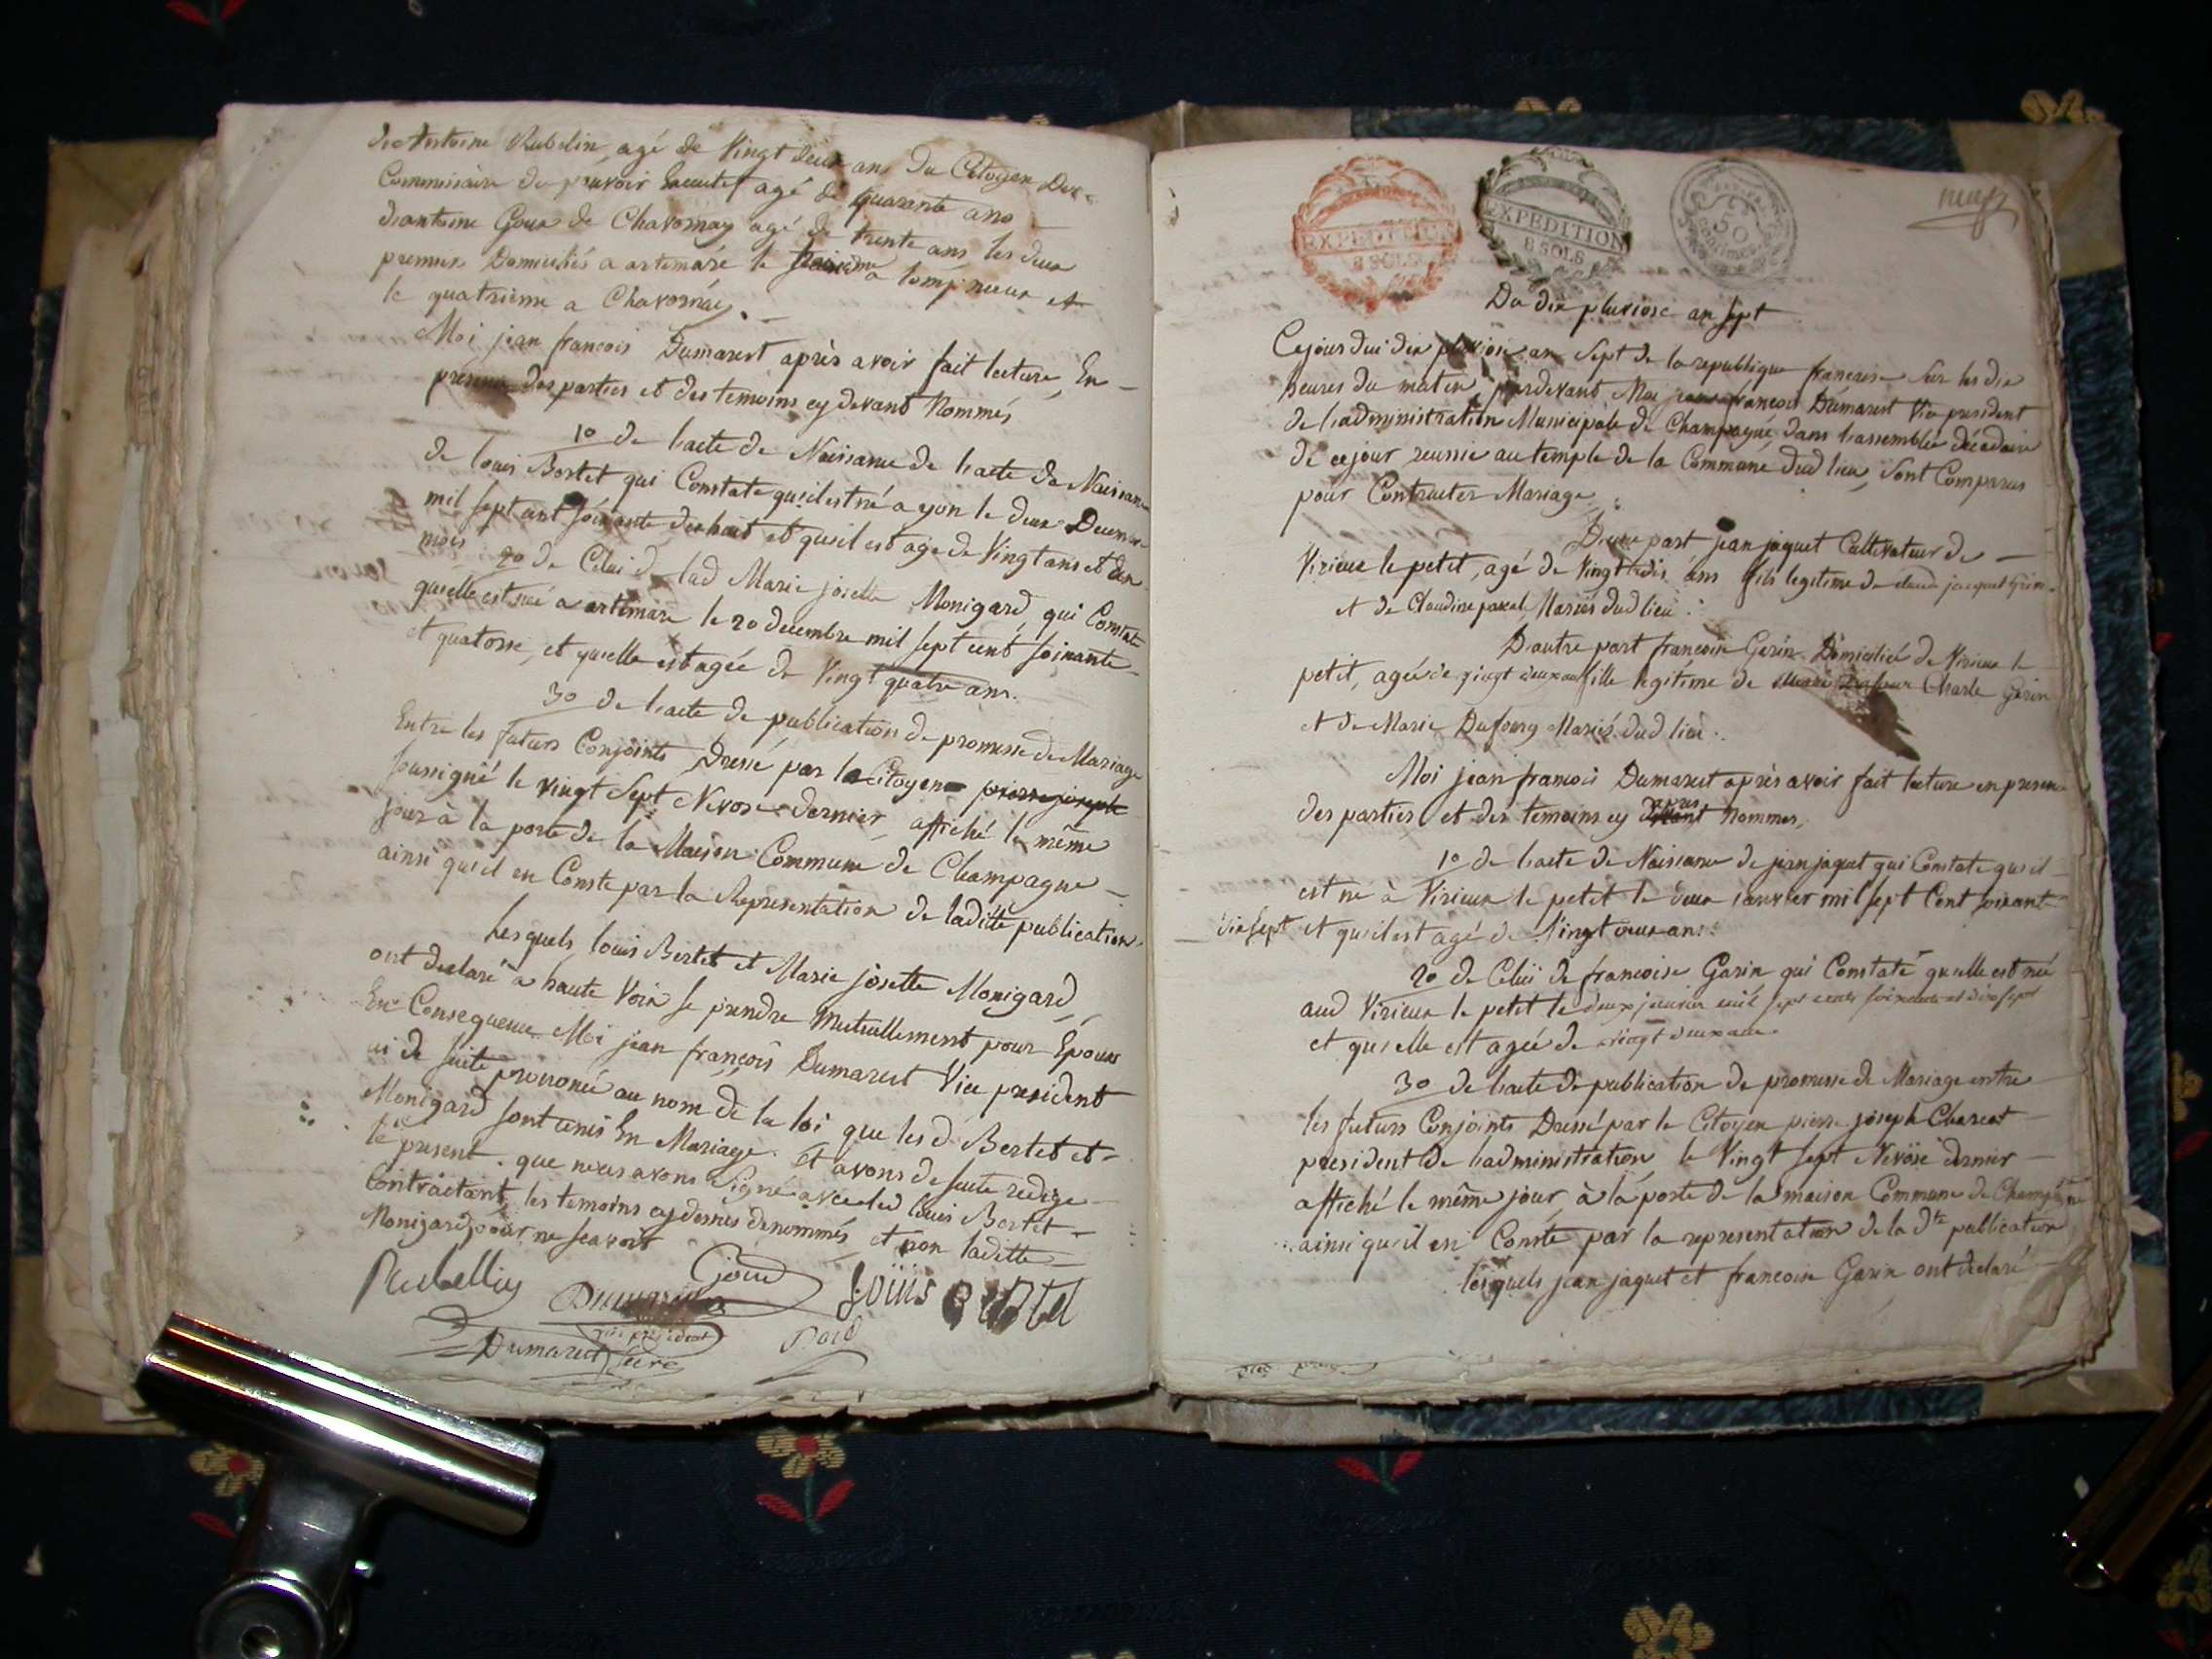 de Antoine Rubelin, agé de Vingt deux ans du Citoyen
Commissaire du pouvoir Executif agé de quarente ans
dantoine Goux de Chavornay agé de trente ans les deux
premier Domiciliés a artemare le troisieme a lompnieux et
le quatrieme a Chavornay. –
Moi jean francois Dumarest après avoir fait lecture, En –
presence des parties et des temoins cy devant Nommés
1º de l'acte de Naissance de l'acte de Naissance
de louis Bertet qui Constate qu'il est né a yon le deux Decembre
mil sept cent soixante dix huit et qu'il est agé de Vingt ans et
mois 2º de Celui de lad Marie josette Monigard, qui Constate
quelle est née a artemare le 20 decembre mil sept cent soixante
et quatorse, et quelle est agée de Vingt quatre ans.
3º de l'acte de publication de promesse de Mariage
Entre les futurs Conjoints Dressé par le Citoyen pierre joseph
soussigné le vingt Sept Nivose dernier, affiché le même
jour à la porte de la Maison Commune de Champagne –
ainsi qu'il en Conste par la Representation de laditte publication.
Lesquels louis Bertet et Marie josette Monigard,
ont declaré a haute Voix se prendre Mutuellement pour Epoux
En Consequence Moi jean françois Dumarest Vice president
ai de suite prononcé au nom de la loi que les d. Bertet et –
Monigard sont unis En Mariage. Et avons de suite redigé
le present. que nous avons signé avec led louis Bertet –
Contractant, les temoins cy dessus denommés, et non laditte –
Monigard pour ne scavoir
Rubellin Goux Loüis Bertet
Dumarest
vice president
Dumarest secre
Du dix pluviose an sept
Cejourdui dix pluviose an Sept de la republique francaise Sur les dix
heures du matin, pardevant Moi jean francois Dumarest Vice president
de l'administration Municipale de Champagne, dans l'assemblée décadaire
de ce jour reunie au temple de la Commune dud lieu, Sont Comparus
pour Contracter Mariage,
D'une part jean jaquet Cultivateur de –
Virieux le petit, agé de Vingt ans fils legitime de
et de Claudine pascal Mariés dud lieu.
D'autre part francoise Gerin Domiciliée de Virieux le
petit, agée de vingt deux ans fille legitime de Charle Gerin
et de Marie Dufourg Mariés dud lieu.
Moi jean francois Dumarest après avoir fait lecture en presence
des parties et des temoins cy apres Nommés,
1º de l'acte de Naissance de jean jaquet qui Constate qu'il
est né à Virieux le petit le deux janvier mil sept Cent soixante
dix sept et qu'il est agé de Vingt deux ans.
2º de Celui de francoise Garin qui Constate quelle est née
aud Virieux le petit le deux janvier mil sept cents soixante et dix sept
et quelle est agée de vingt deux ans.
3º de l'acte de publication de promesse de Mariage entre
les futurs Conjoints Dressé par le Citoyen pierre joseph Charcot –
president de l'administration le Vingt sept Nivôse dernier –
affiché le même jour à la porte de la maison Commune de Champagne
ainsi qu'il en Conste par la representation de la dte publication
Lesquels jean jaquet et francoise Garin ont declaré
EXPEDITION
8 SOLS
EXPEDITION
8 SOLS
50
centimes
neuf